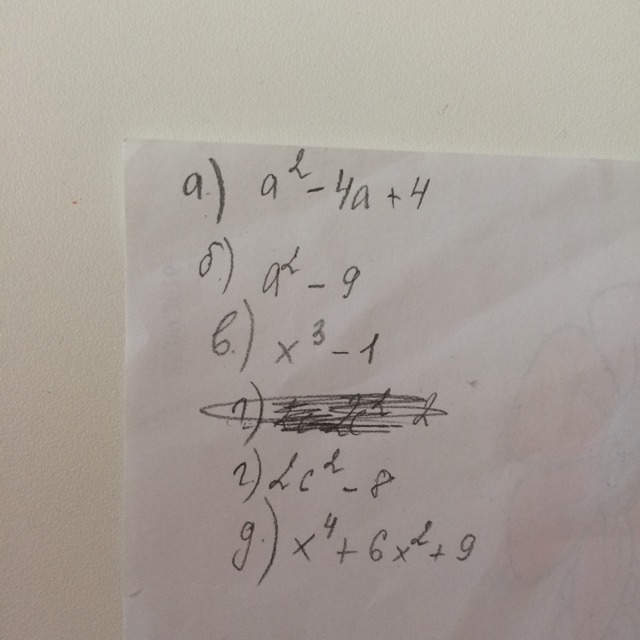 а.) a² - 4a + 4
б.) a² - 9
в.) x³ - 1
г)
г) 2c² - 8
д.) x⁴ + 6x² + 9